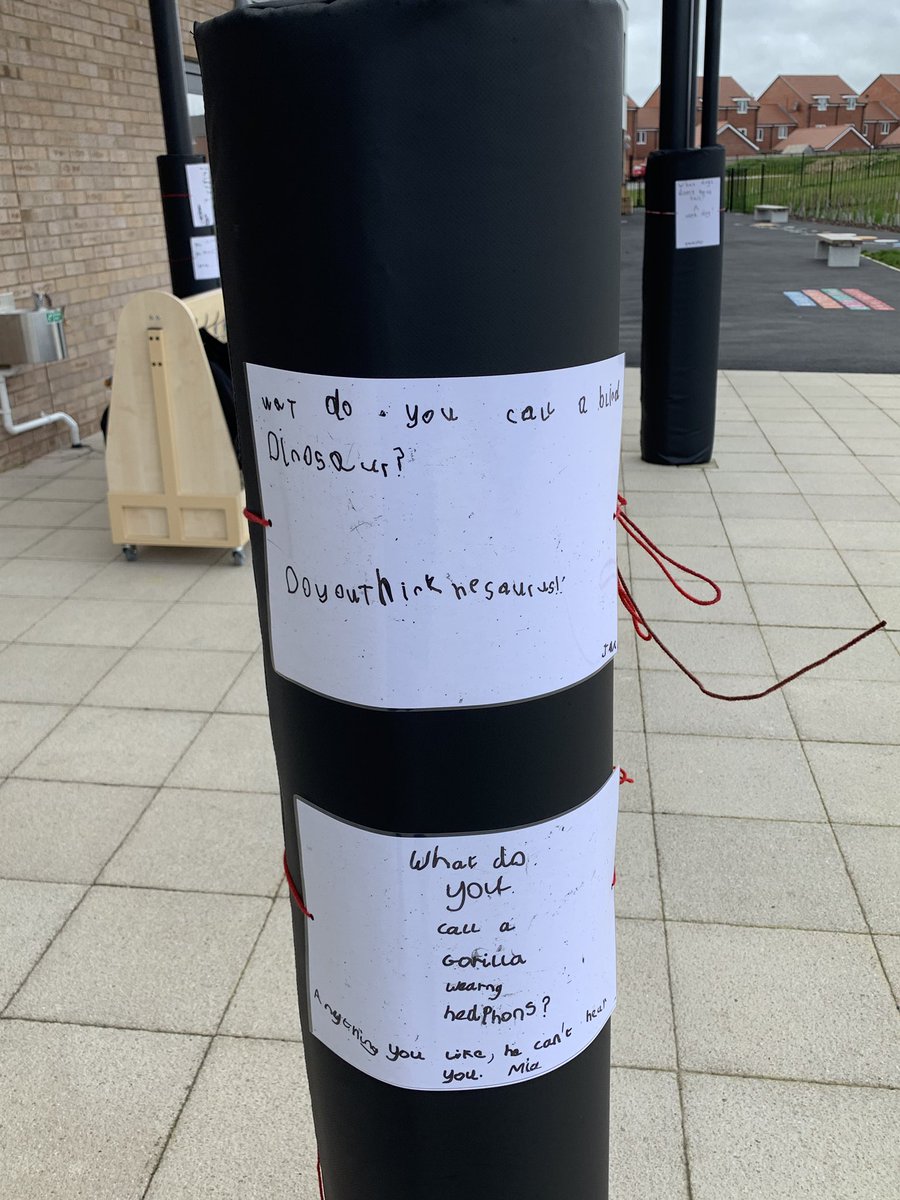 wat do you call a blind
Dinosaur?
Doyouthinkhesaurus!
What do
you
call a
Gorilla
wearng
hedphons?
Anything you like, he can't hear
you. Mia